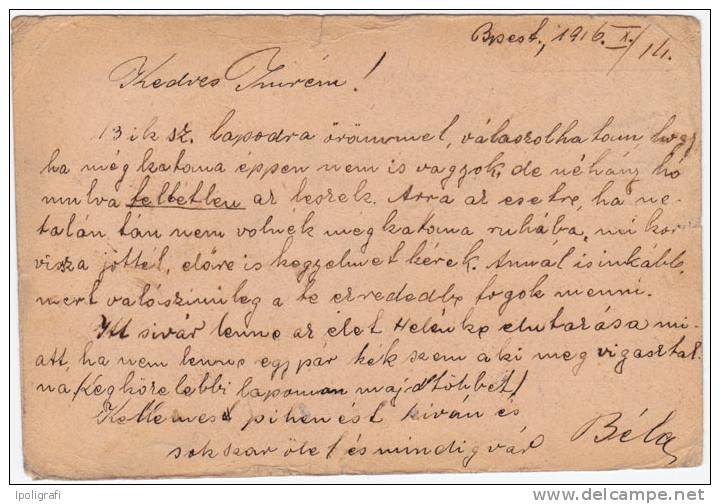 Bpest, 1916. X./14.
Kedves Imrém!
13 ik sz. lapodra örömmel, válaszolhatom, hogy
ha még katona éppen nem is vagyok, de néhány hó
mulva feltétlen az leszek. Arra az esetre, ha ne-
talán tán nem volnék még katona ruhába, mikor
vissza jöttél, előre is kegyelmet kérek. Annál is inkább,
mert valószinüleg a te ezrededbe fogok menni.
Itt sivár lenne az élet Helénke elutazása mi-
att, ha nem lenne egy pár kék szem a ki meg vigasztal-
na (Legközelebbi lapomon majd többet)
Kellemest pihenést kiván és
sokszor ölel és mindig vár Béla
ipoligrafi
http://www.delcampe.net